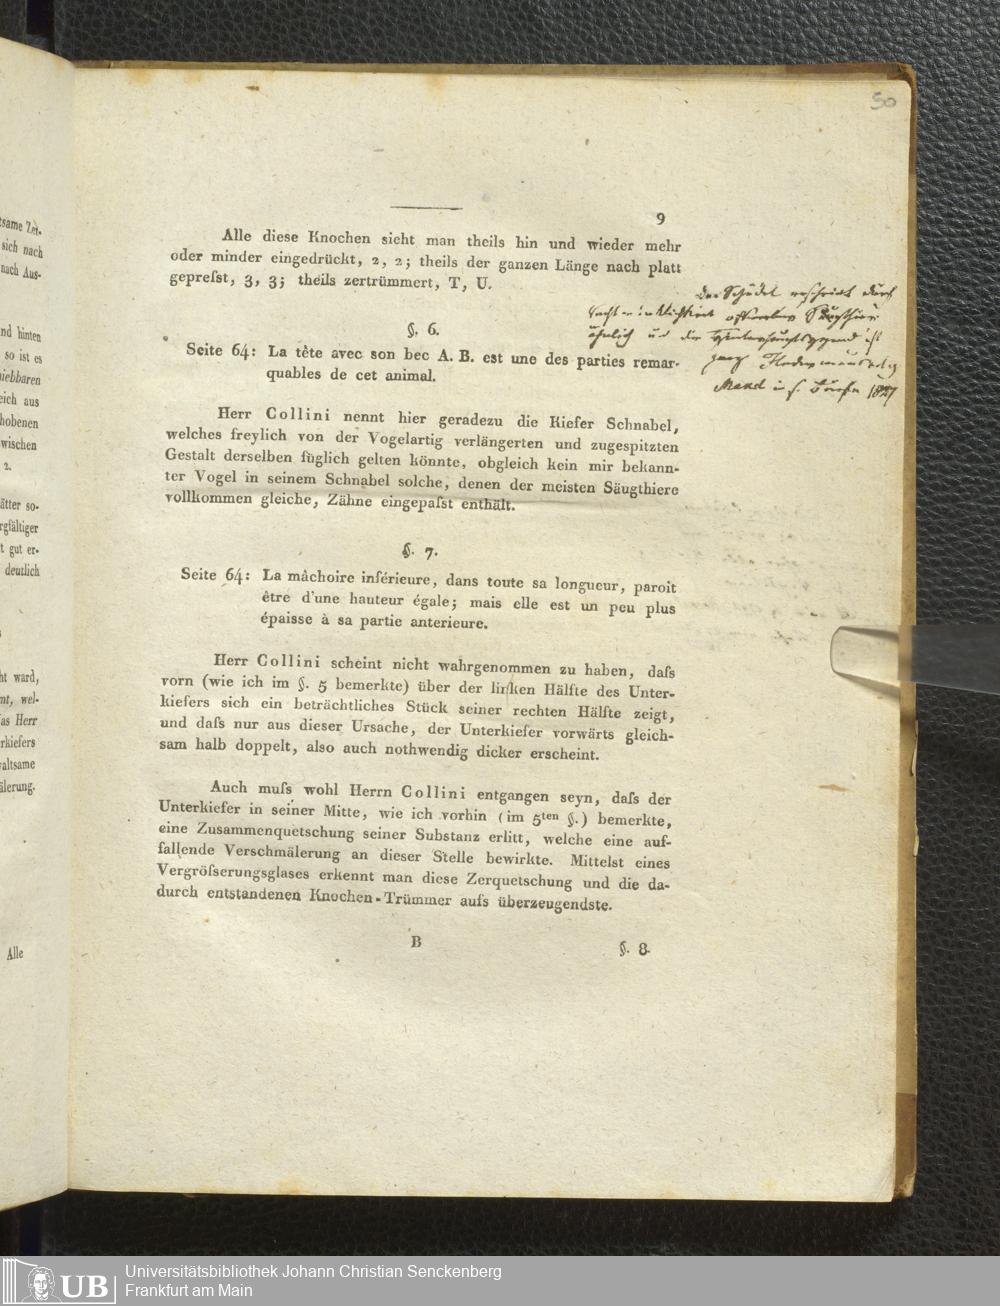 50
9
Alle diese Knochen sieht man theils hin und wieder mehr
oder minder eingedrückt, 2, 2; theils der ganzen Länge nach platt
gepreſst, 3, 3; theils zertrümmert, T, U.
Der Schädel erscheint durch
ähnlich und die Hinterhauptsgegend ist
ganz Fledermausartig
1827
§. 6.
Seite 64: La tête avec son bec A. B. est une des parties remar-
quables de cet animal.
Herr Collini nennt hier geradezu die Kiefer Schnabel,
welches freylich von der Vogelartig verlängerten und zugespitzten
Gestalt derselben füglich gelten könnte, obgleich kein mir bekann-
ter Vogel in seinem Schnabel solche, denen der meisten Säugthiere
vollkommen gleiche, Zähne eingepaſst enthält.
§. 7.
Seite 64: La mâchoire inférieure, dans toute sa longueur, paroit
être d'une hauteur égale; mais elle est un peu plus
épaisse à sa partie anterieure.
Herr Collini scheint nicht wahrgenommen zu haben, daſs
vorn (wie ich im §. 5 bemerkte) über der linken Hälfte des Unter-
kiefers sich ein beträchtliches Stück seiner rechten Hälfte zeigt,
und daſs nur aus dieser Ursache, der Unterkiefer vorwärts gleich-
sam halb doppelt, also auch nothwendig dicker erscheint.
Auch muſs wohl Herrn Collini entgangen seyn, daſs der
Unterkiefer in seiner Mitte, wie ich vorhin (im 5ten §.) bemerkte,
eine Zusammenquetschung seiner Substanz erlitt, welche eine auf-
fallende Verschmälerung an dieser Stelle bewirkte. Mittelst eines
Vergröſserungsglases erkennt man diese Zerquetschung und die da-
durch entstandenen Knochen-Trümmer aufs überzeugendste.
B
§. 8.
tsame Zei-
sich nach
nach Aus-
nd hinten
so ist es
hiebbaren
eich aus
hobenen
wischen
2.
ätter so-
rgfältiger
t gut er-
deutlich
ht ward,
nt, wel-
as Herr
rkiefers
valtsame
älerung.
Alle
UB
Universitätsbibliothek Johann Christian Senckenberg
Frankfurt am Main